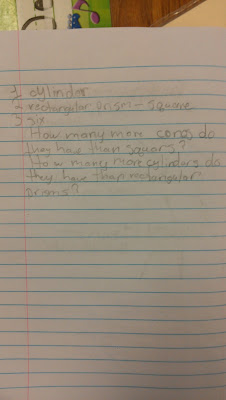 1 cylinder
2 rectangular prism - square
3 six
How many more cones do
they have than squars?
How many more cylinders do
they have than rectangular
prisms?